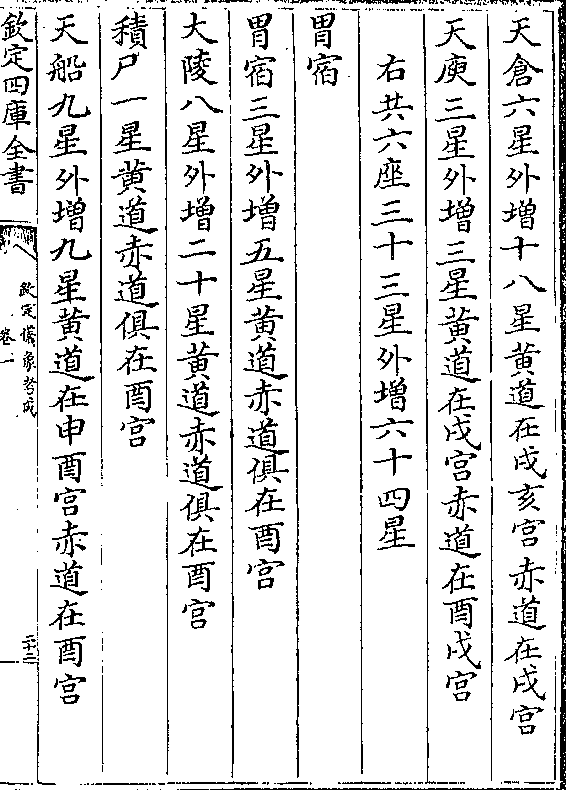 天倉六星外增十八星黃道在戌亥宮赤道在戌宮
天庾三星外增三星黃道在戌宮赤道在酉戌宮
右共六座三十三星外增六十四星
胃宿
胃宿三星外增五星黃道赤道俱在酉宮
大陵八星外增二十星黃道赤道俱在酉宮
積尸一星黃道赤道俱在酉宮
天船九星外增九星黃道在申酉宮赤道在酉宮
欽定四庫全書
欽定儀象考成
卷一
二十二